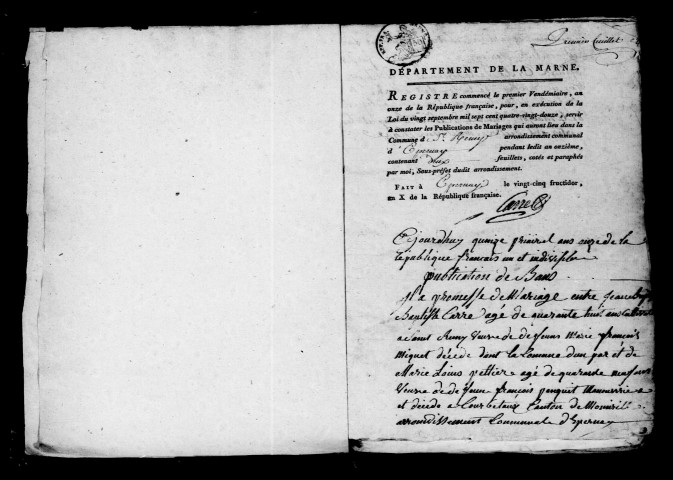 Premier feuillet
DÉPARTEMENT DE LA MARNE.
REGISTRE commencé le premier Vendémiaire, an
onze de la République française, pour, en exécution de la
Loi du vingt septembre mil sept cent quatre-vingt-douze, servir
à constater les Publications de Mariages qui auront lieu dans la
Commune d arrondissement communal
d'Epernay pendant ledit an onzième,
contenant deux feuillets, cotés et paraphés
par moi, Sous-préfet dudit arrondissement.
FAIT à Epernay le vingt-cinq fructidor,
an X de la République française.
Cejourdhuy quinze prairiel ans onze de la
republique francais un et indivisible
publication de Bans
Il a promesse de Mariage entre Jean
Baptiste Carre agé de quarante huit ans
Veuve de defeunt Marie françois
Miquet décéde dant la Comune dun par et de
Marie Louis pettier agé de quarande
Veuve de defeun françois
et décéde a Courbetaux Canton de Montmirail
arrondissement Communal d'Epernay